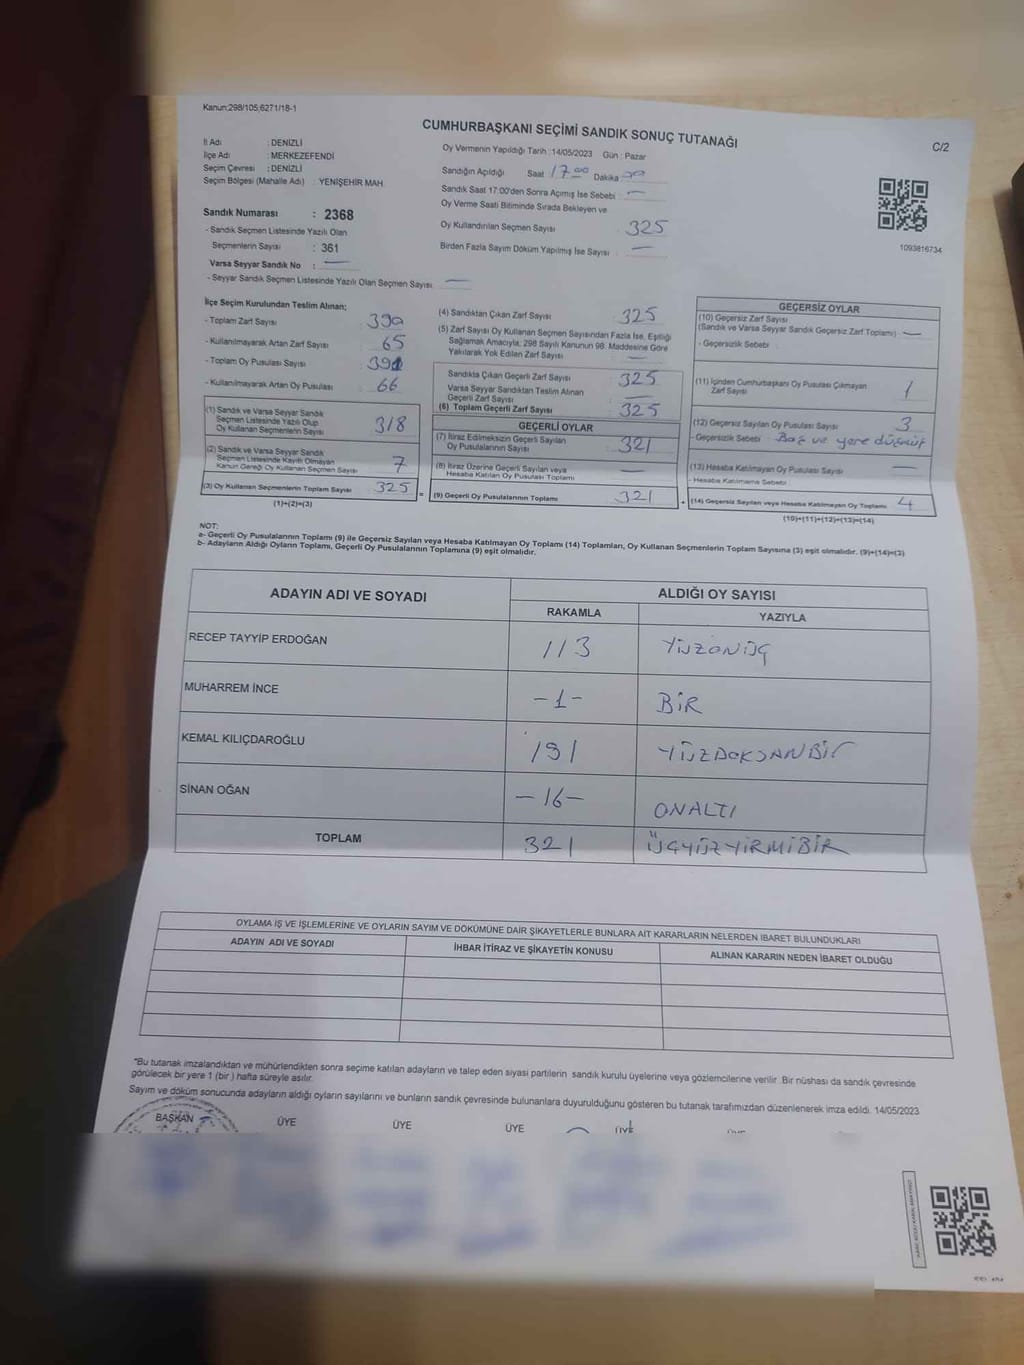 Kanun:298/105,6271/18-1
CUMHURBAŞKANI SEÇİMİ SANDIK SONUÇ TUTANAĞI
C/2
İl Adı : DENİZLİ
İlçe Adı : MERKEZEFENDİ
Seçim Çevresi : DENİZLİ
Seçim Bölgesi (Mahalle Adı) : YENİŞEHİR MAH.
Sandık Numarası : 2368
- Sandık Seçmen Listesinde Yazılı Olan
Seçmenlerin Sayısı : 361
Varsa Seyyar Sandık No : —
- Seyyar Sandık Seçmen Listesinde Yazılı Olan Seçmen Sayısı —
Oy Vermenin Yapıldığı Tarih : 14/05/2023 Gün : Pazar
Sandığın Açıldığı Saat 17.00 Dakika 00
Sandık Saat 17:00'den Sonra Açımış İse Sebebi : —
Oy Verme Saati Bitiminde Sırada Bekleyen ve
Oy Kullandırılan Seçmen Sayısı : 325
Birden Fazla Sayım Döküm Yapılmış İse Sayısı : —
1093816734
İlçe Seçim Kurulundan Teslim Alınan;
- Toplam Zarf Sayısı 390
- Kullanılmayarak Artan Zarf Sayısı 65
- Toplam Oy Pusulası Sayısı 391
- Kullanılmayarak Artan Oy Pusulası 66
(1) Sandık ve Varsa Seyyar Sandık
Seçmen Listesinde Yazılı Olup
Oy Kullanan Seçmenlerin Sayısı 318
(2) Sandık ve Varsa Seyyar Sandık
Seçmen Listesinde Kayıtlı Olmayan
Kanun Gereği Oy Kullanan Seçmen Sayısı 7
(3) Oy Kullanan Seçmenlerin Toplam Sayısı 325 =
(1)+(2)=(3)
(4) Sandıktan Çıkan Zarf Sayısı 325
(5) Zarf Sayısı Oy Kullanan Seçmen Sayısından Fazla İse, Eşitliği
Sağlamak Amacıyla, 298 Sayılı Kanunun 98. Maddesine Göre
Yakılarak Yok Edilen Zarf Sayısı —
Sandıkta Çıkan Geçerli Zarf Sayısı 325
Varsa Seyyar Sandıktan Teslim Alınan
Geçerli Zarf Sayısı —
(6) Toplam Geçerli Zarf Sayısı 325
GEÇERLİ OYLAR
(7) İtiraz Edilmeksizin Geçerli Sayılan
Oy Pusulalarının Sayısı 321
(8) İtiraz Üzerine Geçerli Sayılan veya
Hesaba Katılan Oy Pusulası Toplamı —
(9) Geçerli Oy Pusulalarının Toplamı 321 +
GEÇERSİZ OYLAR
(10) Geçersiz Zarf Sayısı
(Sandık ve Varsa Seyyar Sandık Geçersiz Zarf Toplamı) —
- Geçersizlik Sebebi
(11) İçinden Cumhurbaşkanı Oy Pusulası Çıkmayan
Zarf Sayısı 1
(12) Geçersiz Sayılan Oy Pusulası Sayısı 3
- Geçersizlik Sebebi
(13) Hesaba Katılmayan Oy Pusulası Sayısı —
- Hesaba Katılmama Sebebi
(14) Geçersiz Sayılan veya Hesaba Katılmayan Oy Toplamı 4
(10)+(11)+(12)+(13)=(14)
NOT:
a- Geçerli Oy Pusulalarının Toplamı (9) ile Geçersiz Sayılan veya Hesaba Katılmayan Oy Toplamı (14) Toplamları, Oy Kullanan Seçmenlerin Toplam Sayısına (3) eşit olmalıdır. (9)+(14)=(3)
b- Adayların Aldığı Oyların Toplamı, Geçerli Oy Pusulalarının Toplamına (9) eşit olmalıdır.
ADAYIN ADI VE SOYADI ALDIĞI OY SAYISI
RAKAMLA YAZIYLA
RECEP TAYYİP ERDOĞAN 113 YÜZONÜÇ
MUHARREM İNCE -1- BİR
KEMAL KILIÇDAROĞLU 191 YÜZDOKSANBİR
SİNAN OĞAN -16- ONALTI
TOPLAM 321 ÜÇYÜZYİRMİBİR
OYLAMA İŞ VE İŞLEMLERİNE VE OYLARIN SAYIM VE DÖKÜMÜNE DAİR ŞİKAYETLERLE BUNLARA AİT KARARLARIN NELERDEN İBARET BULUNDUKLARI
ADAYIN ADI VE SOYADI İHBAR İTİRAZ VE ŞİKAYETİN KONUSU ALINAN KARARIN NEDEN İBARET OLDUĞU
*Bu tutanak imzalandıktan ve mühürlendikten sonra seçime katılan adayların ve talep eden siyasi partilerin sandık kurulu üyelerine veya gözlemcilerine verilir .Bir nüshası da sandık çevresinde
görülecek bir yere 1 (bir ) hafta süreyle asılır.
Sayım ve döküm sonucunda adayların aldığı oyların sayılarını ve bunların sandık çevresinde bulunanlara duyurulduğunu gösteren bu tutanak tarafımızdan düzenlenerek imza edildi. 14/05/2023
BAŞKAN ÜYE ÜYE ÜYE ÜYE